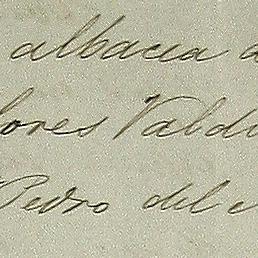 albacea a
lores Vald
Pedro del